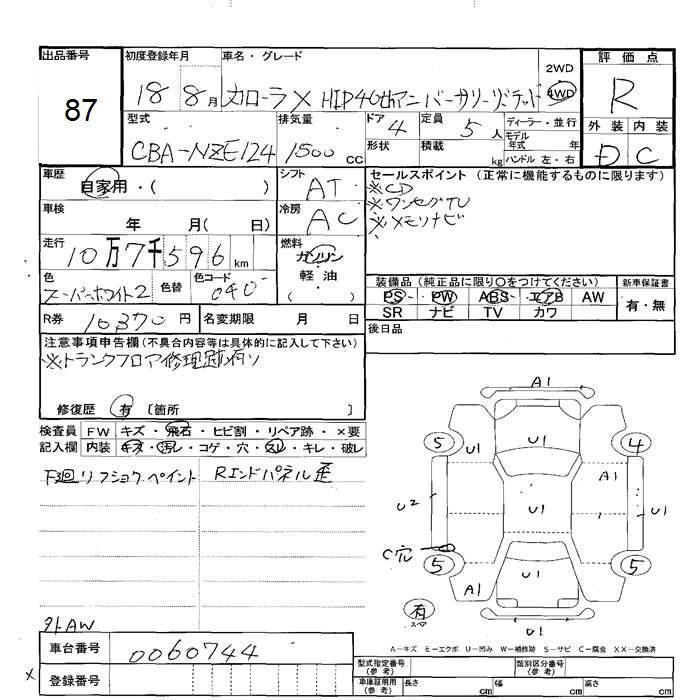 出品番号 初度登録年月 車名・グレード 2WD 評価点
87 18 8月 カローラ X HID40thアニバーサリーリミテッド 4WD R
型式 排気量 ドア 4 定員 5人 ディーラー・並行 外装 内装
CBA-NZE124 1500cc 形状 積載 kg モデル年式 年 D C
ハンドル 左・右
車歴 自家用・( ) シフト AT セールスポイント (正常に機能するものに限ります)
※CD
車検 年 月( 日) 冷房 AC ※ワンセグTV
※メモリナビ
走行 10万7千596km 燃料 ガソリン
軽油
( )
色 スーパーホワイト2 色替 色コード 040 装備品 (純正品に限り○をつけてください) 新車保証書
PS PW ABS エアB AW 有・無
SR ナビ TV カワ
R券 10,370円 名変期限 月 日 後日品
注意事項申告欄(不具合内容等は具体的に記入して下さい)
※トランクフロア修理跡有り
修復歴 有 〔箇所 〕
検査員 FW キズ・飛石・ヒビ割・リペア跡・×要
記入欄 内装 キズ・汚レ・コゲ・穴・スレ・キレ・破レ
下廻リフショクペイント Rエンドパネル歪
A1
5 U1 U1 4
A1
U2 U1 U1
C穴
5 U1 5
A1
有
スペア
U1
外AW
A-キズ E-エクボ U-凹み W-補修跡 S-サビ C-腐食 XX-交換済
車台番号 0060744 型式指定番号(参考) 類別区分番号(参考)
× 登録番号 車庫証明用(参考) 長さ cm 幅 cm 高さ cm